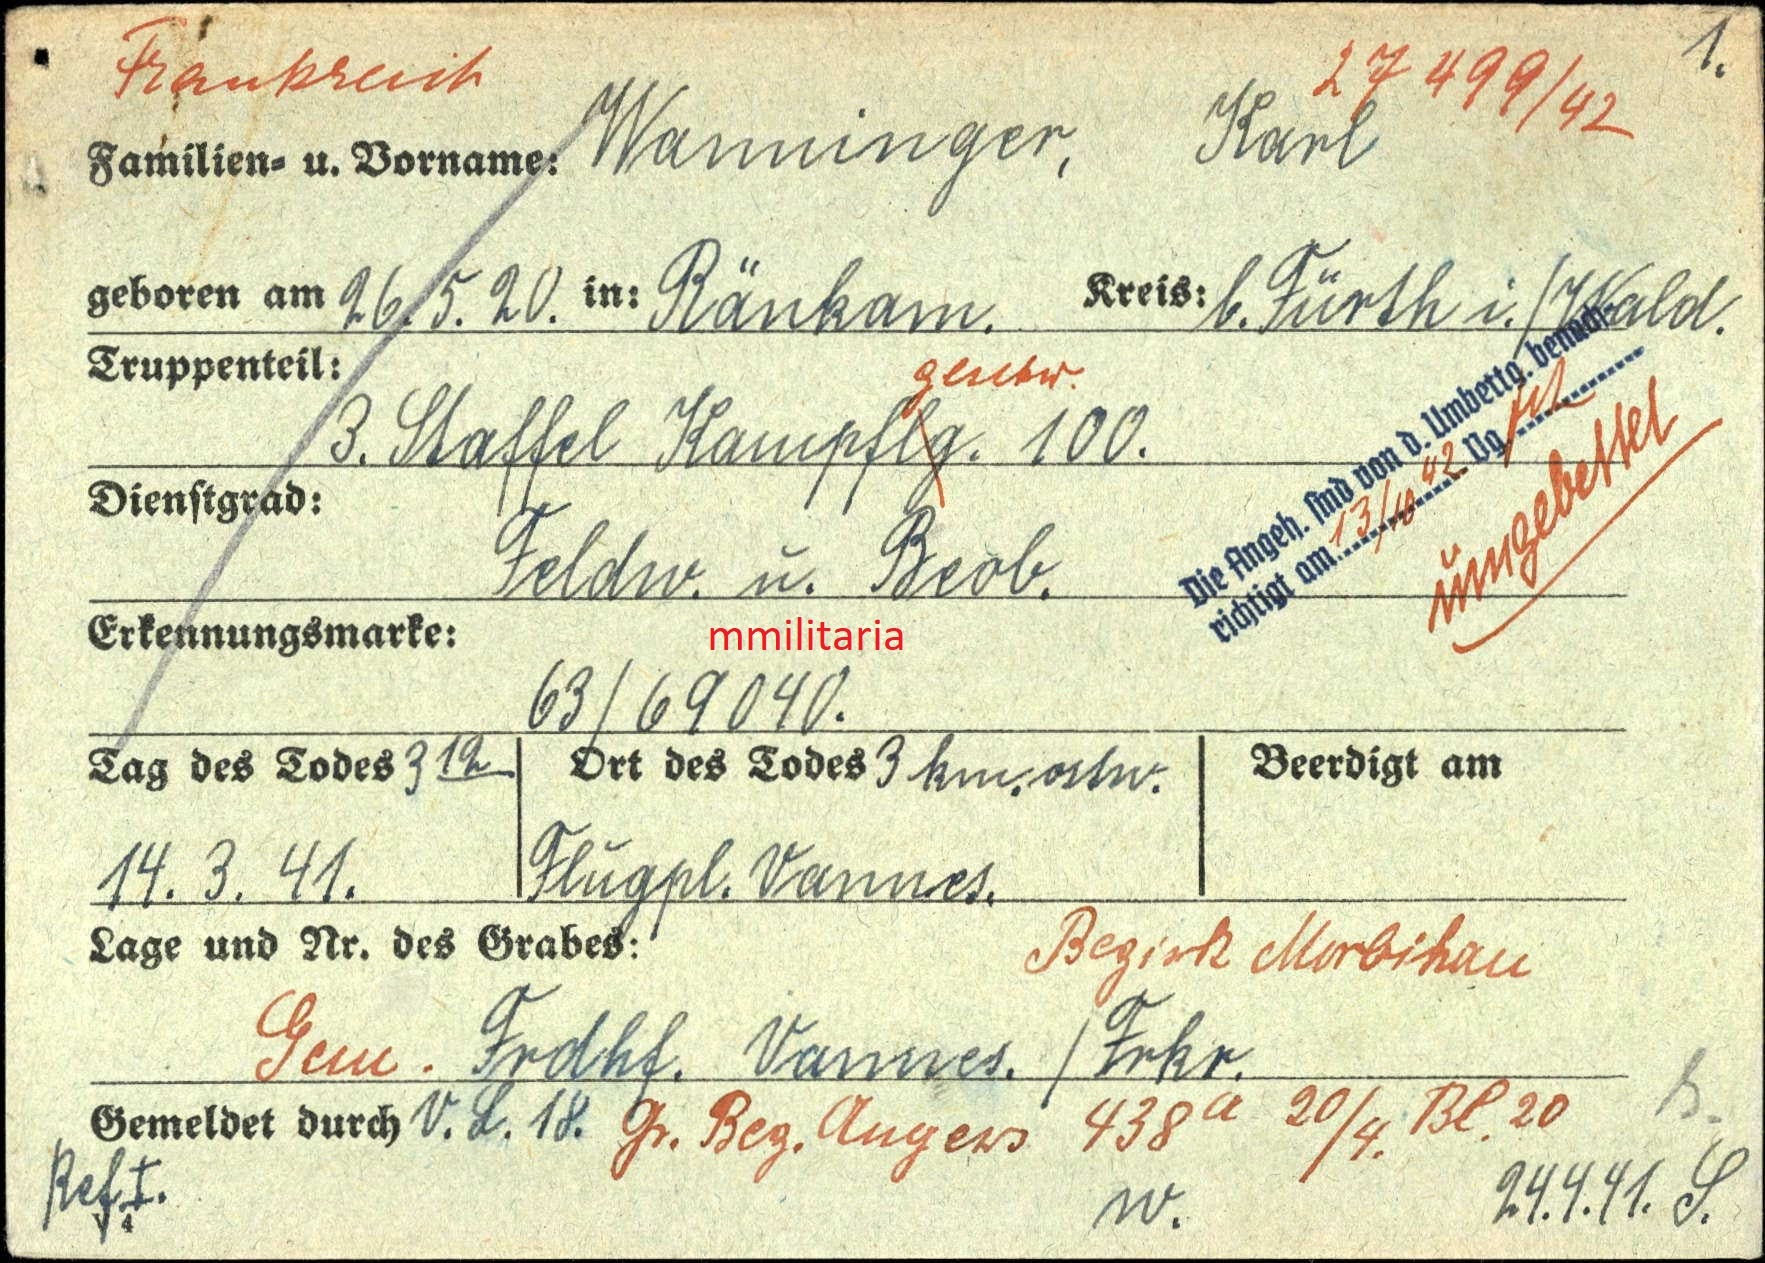 Frankreich 27499/42 1.
Familien- u. Vorname: Wanninger, Karl
geboren am 26.5.20. in: Ränkam. Kreis: b. Fürth i./Wald.
Truppenteil:
geschw.
3. Staffel Kampflg. 100.
Die Angeh. sind von d. Umbettg. benach-
richtigt am 13/10 42 Vg.
umgebettet
Dienstgrad:
Feldw. u. Beob.
Erkennungsmarke:
mmilitaria
63/69040.
Tag des Todes 3 12 Ort des Todes 3 km. ostw. Beerdigt am
14. 3. 41. Flugpl. Vannes.
Lage und Nr. des Grabes: Bezirk Morbihan
Gem. Frdhf. Vannes. / Frkr.
Gemeldet durch V. L. 18. Gr. Bez. Angers 438a 20/4. Bl. 20
Ref. I. w. 24.4.41. S.
V 4